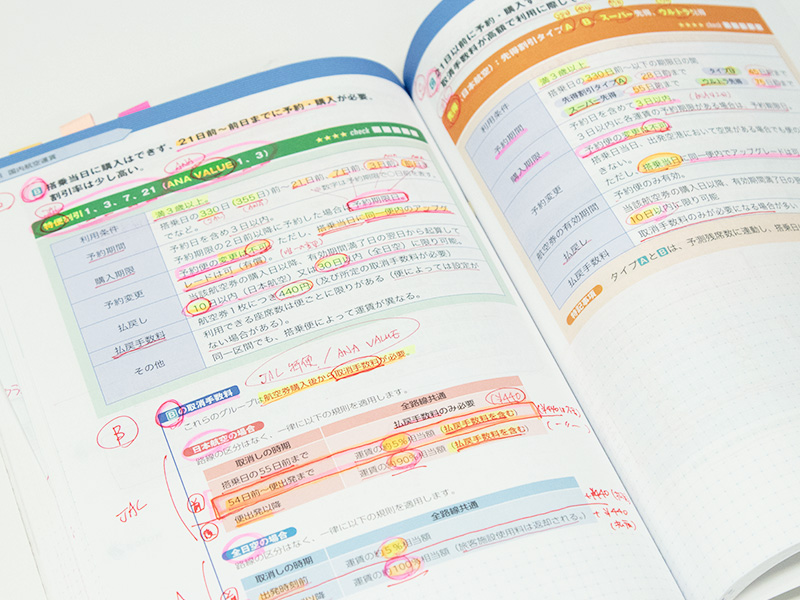 国内航空運賃
搭乗当日に購入はできず、21日前～前日までに予約・購入が必要。
割引率は少し高い。
ANA
特便割引1. 3. 7. 21 (ANA VALUE 1. 3)
★★★★ check
利用条件
満3歳以上
予約期間
搭乗日の330日(355日)前～21日前、7日前、3日前、
でなど。 (ANA)
予約日を含め3日以内。
購入期限
予約期限の2日前以降に予約した場合は、予約期限日。
予約変更
予約便の変更は不可。ただし、搭乗当日に同一便内のアップグ
レードは可(有償)。
払戻し
当該航空券の購入日以降、有効期間満了日の翌日から起算して
10日以内(日本航空)又は30日以内(全日空)に限り可能。
払戻手数料
航空券1枚につき440円(及び所定の取消手数料が必要)
その他
利用できる座席数は便ごとに限りがある(便によっては設定が
ない場合がある)。
同一区間でも、搭乗便によって運賃が異なる。
JAL 特便 / ANA VALUE
回の取消手数料
これらのグループは航空券購入後から取消手数料が必要。
B
日本航空の場合
路線の区分はなく、一律に以下の規則を適用します。
取消しの時期
全路線共通
(¥440)
搭乗日の55日前まで
払戻手数料のみ必要
54日前～便出発まで
運賃の約5%相当額(払戻手数料を含む)
便出発以降
運賃の約90%相当額(払戻手数料を含む)
JAL
前
後
全日空の場合
路線の区分はなく、一律に以下の規則を適用します。
取消しの時期
全路線共通
出発時刻前
運賃の約5%相当額
出発以降
運賃の約100%相当額(旅客施設使用料は返却される。)
+¥440
+¥440
21日以前に予約・購
取消手数料が高額で利用に際して
(日本航空):先得割引タイプA / B、スーパー先得、ウルトラ先得
★★★★ check
利用条件
満3歳以上
予約期間
搭乗日の330日前～以下の期限日の間
先得割引タイプA 28日前まで
タイプB
スーパー先得 55日前まで
ウルトラ先得 75日前まで
購入期限
予約日を含めて3日以内
3日以内に各運賃の予約期限がある場合は、予約期限
予約変更
予約便の変更は不可
搭乗当日、出発空港において空席がある場合でも便の
できない。
ただし、搭乗当日に同一便内でアップグレードは
航空券の有効期間
予約便のみ有効。
払戻し
当該航空券の購入日以降、有効期間満了日の翌
10日以内に限り可能
払戻手数料
取消手数料のみが必要になる場合が多い
特記事項
タイプAとBは、予測残席数に連動し、搭乗日